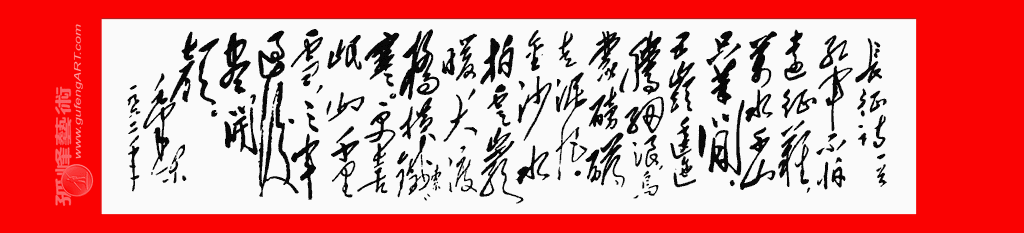 長征诗一首
紅軍不怕
遠征難，
萬水千山
只等閒。
五嶺逶迤
騰細浪，烏
蒙磅礴
走泥丸。
金沙水
拍雲巖
暖，大渡
橋橫鐵索
寒。更喜
岷山千里
雪，三軍
過後
盡開
顏。
毛澤東
一九六二年
孤峰藝術
www.gufengART.com